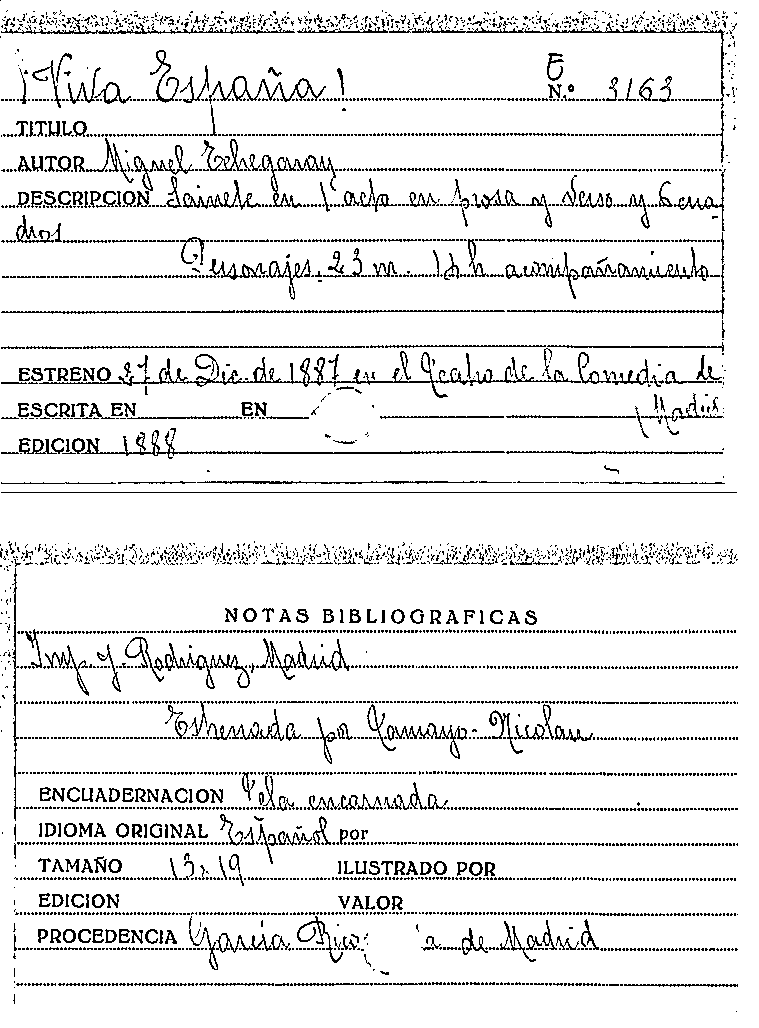 ¡Viva España! E
N.º 3163
TITULO
AUTOR Miguel Echegaray
DESCRIPCION Sainete en 1 acto en prosa y verso y 6 cua-
dros
Personajes. 23 m. 14 h acompañamiento
ESTRENO 27 de Dic. de 1887 en el Teatro de la Comedia de
ESCRITA EN EN Madrid
EDICION 1888
NOTAS BIBLIOGRAFICAS
Imp. J. Rodriguez, Madrid
Estrenada por Tamayo-Nicolau
ENCUADERNACION Tela encarnada
IDIOMA ORIGINAL Español por
TAMAÑO 13x19 ILUSTRADO POR
EDICION VALOR
PROCEDENCIA García Rico de Madrid